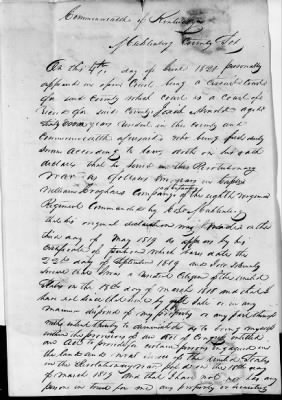 Commonwealth of Kentucky
Muhlenberg County Sct
On this 4th day of June 1821 personally
appeared in open Court being a Circuit Court
for said County which court is a Court of
record for said County Arnold aged
years resident in the County and
Commonwealth aforesaid who being first duly
sworn according to law, doth on his oath
declare that he served in the Revolutionary
war as follows one year in Captain
William Company in the eighth
Regiment Commanded by Col Muhlenberg
that his original declaration was made on the
day of May 1819 as appears by his
Certificate of pension which bears date the
22nd day of September 1819 and I do solemnly
swear that I was a resident Citizen of the United
States on the 18th day of March 1818 and that I
have not since that time by gift sale or in any
manner disposed of my property or any part thereof
with intent thereby to diminish it as to bring myself
within the provisions of an Act of Congress entitled
an Act to provide for certain persons engaged in
the land and naval service of the United States
in the Revolutionary War passed on the 18th day
of March 1818 that I have not nor has any
person in trust for me any property or securities